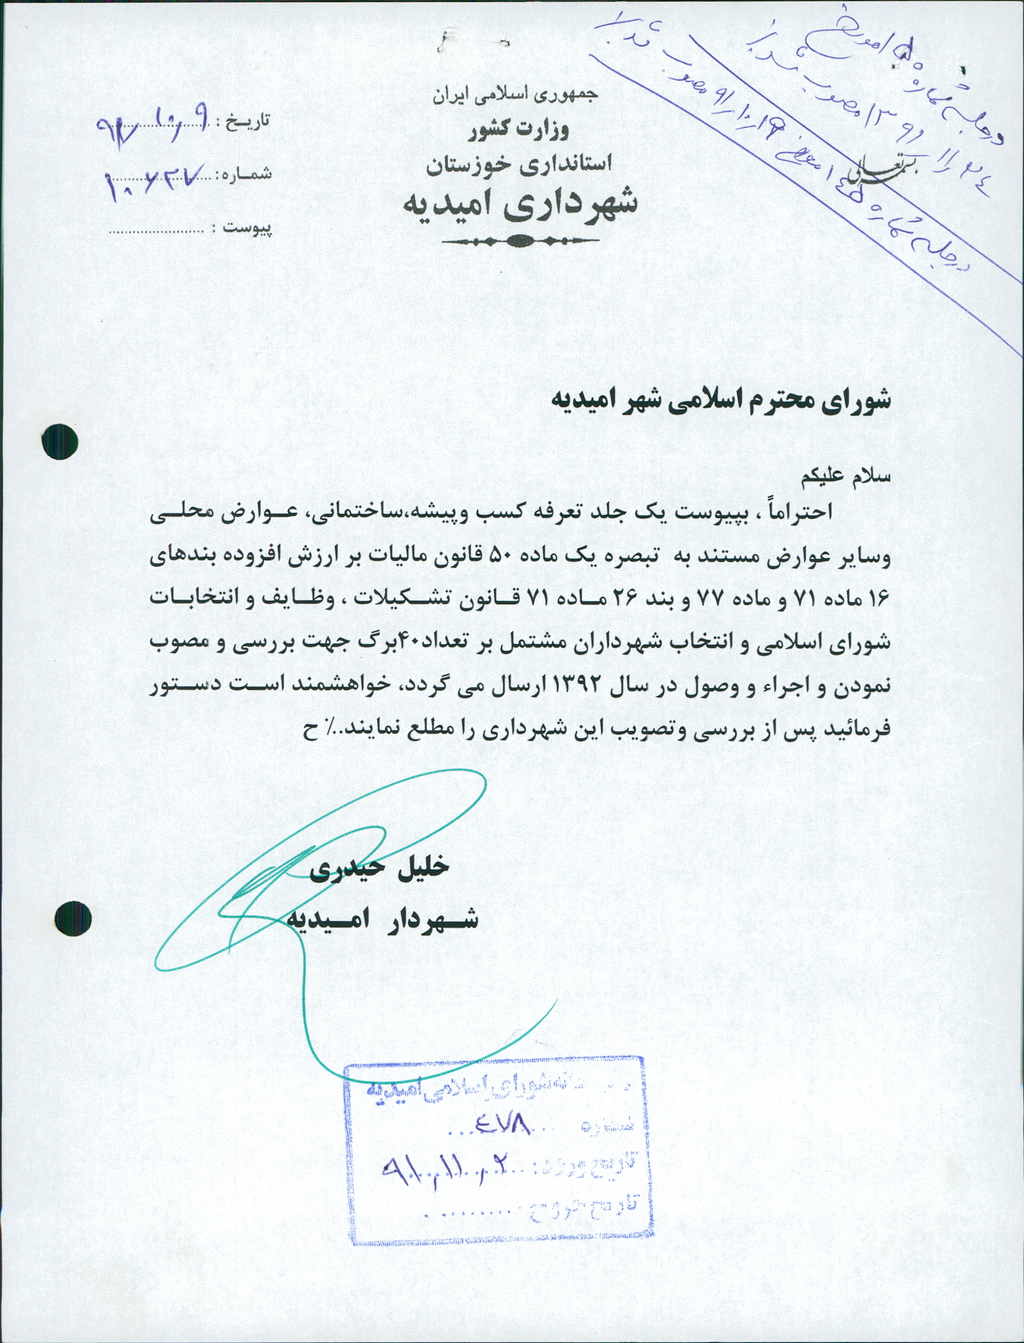 در جلسه شماره ۵۰ مورخ
۱۳۹۱/۱۱/۲۴ مصوب شد
در جلسه شماره ۱۴۵ مورخ ۹۱/۱۰/۱۹ مصوب شد
بسمه تعالی
جمهوری اسلامی ایران
وزارت کشور
استانداری خوزستان
شهرداری امیدیه
تاریخ :
شماره: ۱۰۶۲۳۷
پیوست :
شورای محترم اسلامی شهر امیدیه
سلام علیکم
احتراماً ، بپیوست یک جلد تعرفه کسب وپیشه،ساختمانی، عـوارض محلـی
وسایر عوارض مستند به تبصره یک ماده ۵۰ قانون مالیات بر ارزش افزوده بندهای
۱۶ ماده ۷۱ و ماده ۷۷ و بند ۲۶ مـاده ۷۱ قـانون تشـکیلات ، وظـایف و انتخابـات
شورای اسلامی و انتخاب شهرداران مشتمل بر تعداد۴۰برگ جهت بررسی و مصوب
نمودن و اجراء و وصول در سال ۱۳۹۲ ارسال می گردد، خواهشمند اسـت دسـتور
فرمائید پس از بررسی وتصویب این شهرداری را مطلع نمایند..٪ ح
خلیل حیدری
شـهردار امـیدیه
شورای اسلامی امیدیه
شماره ۴۷۸
تاریخ ورود: ۹۱/۱۱/۲
تاریخ خروج: